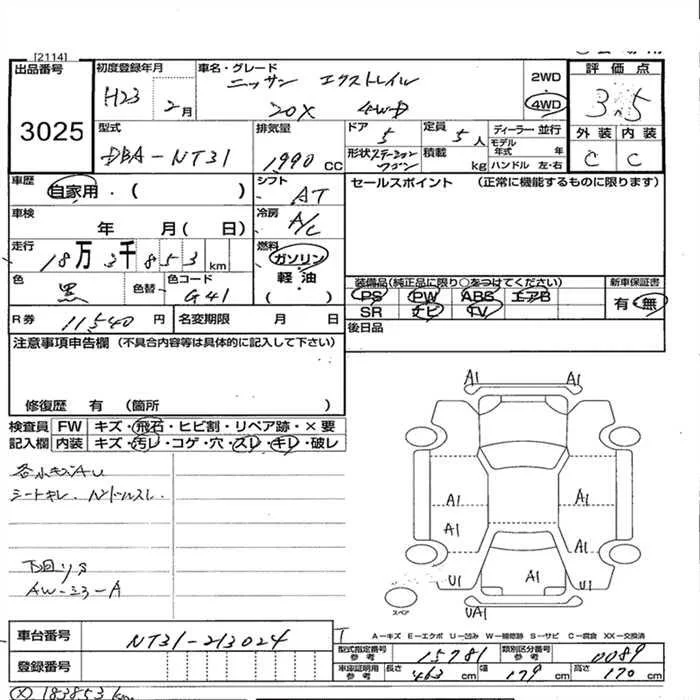 [2114]
出品番号
3025
初度登録年月
H23 2月
車名・グレード
ニッサン エクストレイル
20X 4WD
2WD
4WD
評価点
3.5
外装 内装
C C
型式
DBA-NT31
排気量
1990 CC
ドア
5
定員
5人
形状 ステーションワゴン
積載 kg
ディーラー・並行
モデル年式 年
ハンドル 左・右
車歴
自家用 ・ ( )
シフト
AT
車検
年 月( 日)
冷房
A/C
走行
18万3千853 km
燃料
ガソリン
軽油
( )
色
黒
色替
色コード
G41
R券 11,540 円
名変期限 月 日
セールスポイント (正常に機能するものに限ります)
装備品(純正品に限り○をつけてください)
PS PW ABS エアB
SR ナビ TV
新車保証書
有・無
後日品
注意事項申告欄 (不具合内容等は具体的に記入して下さい)
修復歴 有 (箇所 )
検査員
記入欄
FW キズ・飛石・ヒビ割・リペア跡・×要
内装 キズ・汚レ・コゲ・穴・スレ・キレ・破レ
各小キズAU
シートキレ、ハンドルスレ
下回りS
AW-ミラ-A
A1 A1
A1 A1
A1 A1
U1 A1 U1
スペア
UA1
A-キズ E-エクボ U-凹み W-補修跡 S-サビ C-腐食 XX-交換済
車台番号
NT31-213024
登録番号
型式指定番号
参考
15781
類別区分番号
参考
0089
車庫証明用
参考
長さ 463 cm
幅 179 cm
高さ 170 cm
(X) 183853 km